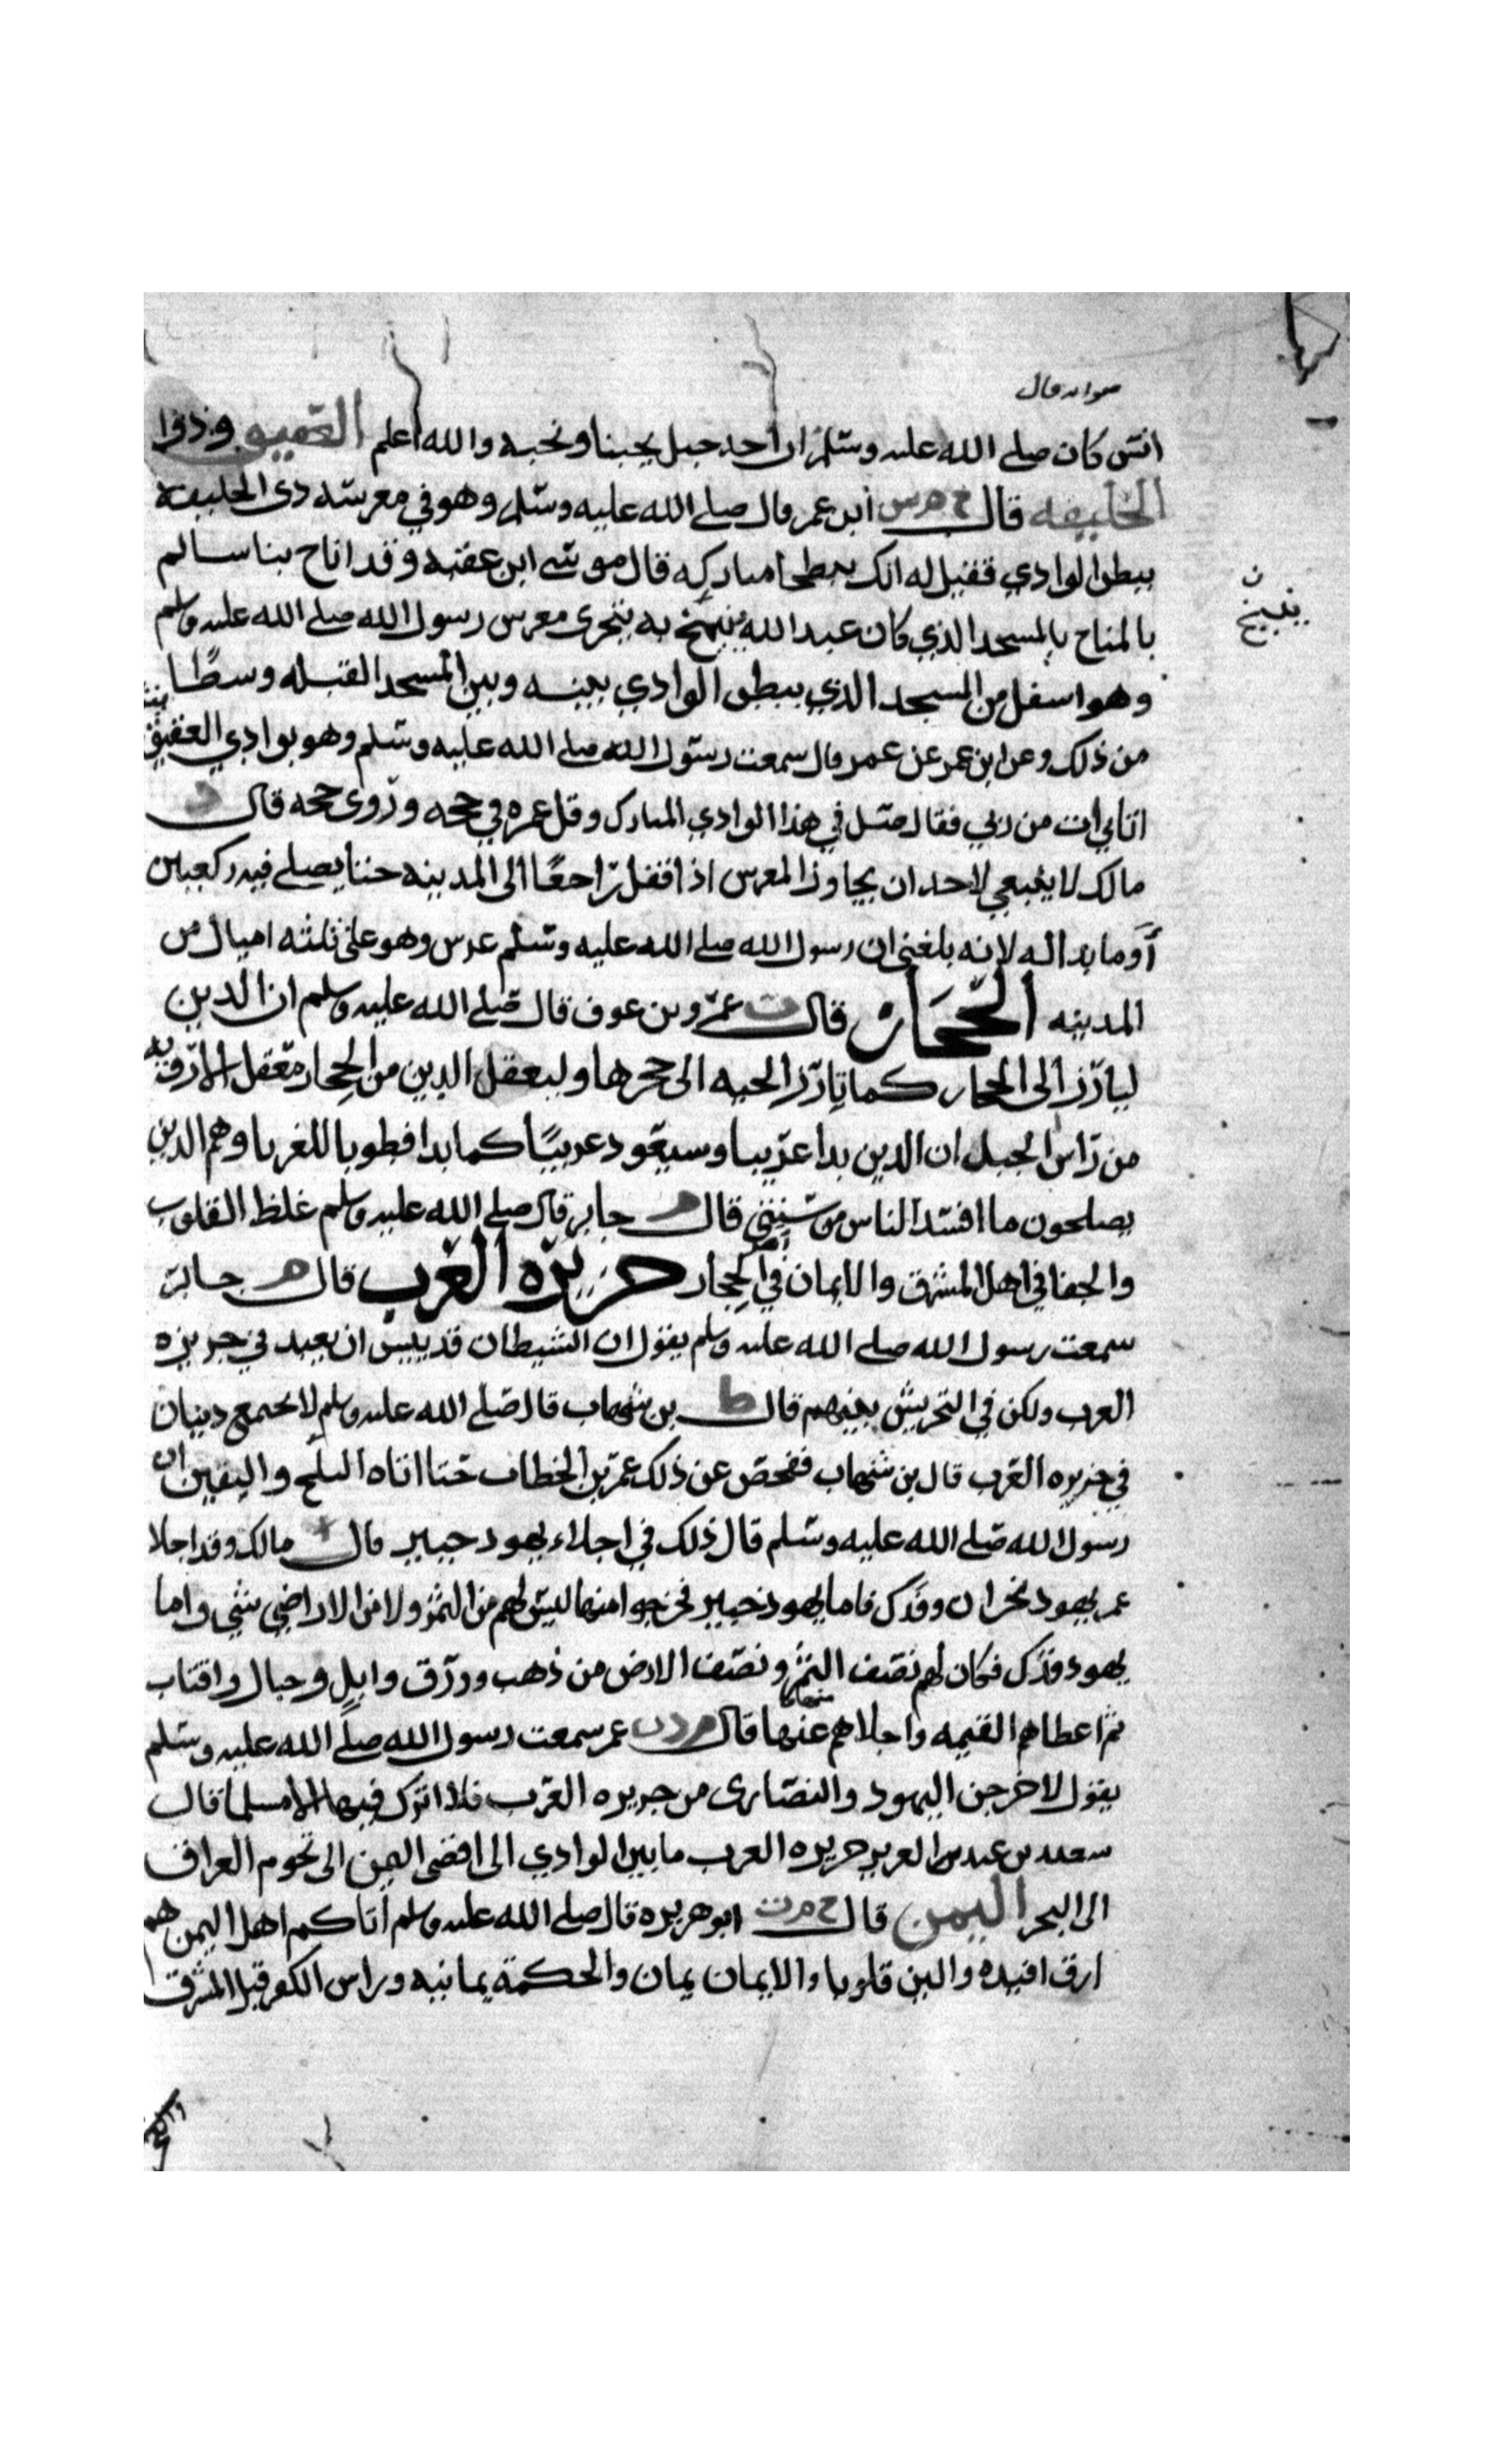 صوابه قال
انس كان صلى الله عليه وسلم ان احد جبل يحبنا ونحبه والله اعلم العقيق وذوا
الحليفه قال خ م س ابن عمر قال صلى الله عليه وسلم وهو في معرسه ذى الحليفه
ببطن الوادي فقيل له انك ببطحا مباركه قال موسى ابن عقبه وقد اناخ بنا سالم
بالمناخ بالمسجد الذي كان عبد الله ينيخ به يتحرى معرس رسول الله صلى الله عليه وسلم
ن
ينيخ
وهو اسفل من المسجد الذي ببطن الوادي بينه وبين المسجد القبله وسطًا
من ذلك وعن ابن عمر عن عمر قال سمعت رسول الله صلى الله عليه وسلم وهو بوادي العقيق
اتاني ات من ربي فقال صل في هذا الوادي المبارك وقل عمره في حجه وروى حجه قال د
مالك لا ينبغي لاحد ان يجاوز المعرس اذا قفل راجعًا الى المدينه حتا يصلي فيه ركعتين
أو ما بدا له لانه بلغني ان رسول الله صلى الله عليه وسلم عرس وهو على ثلثه اميال من
المدينه الحجاز قال ت عمرو بن عوف قال صلى الله عليه وسلم ان الدين
ليارز الى الحجاز كما تارز الحيه الى جحرها وليعقل الدين من الحجاز معقل الاروية
من راس الجبل ان الدين بدا غريبا وسيعود غريبًا كما بدا فطوبا للغربا وهم الذين
يصلحون ما افسد الناس من سنتي قال م جابر قال صلى الله عليه وسلم غلظ القلوب
والجفا في اهل المشرق والايمان في اهل الحجاز جزيره العرب قال م جابر
سمعت رسول الله صلى الله عليه وسلم يقول ان الشيطان قد ييس ان يعبد في جزيره
العرب ولكن في التحريش بينهم قال ط بن شهاب قال صلى الله عليه وسلم لا يجتمع دينان
في جزيره العرب قال بن شهاب ففحص عن ذلك عمر بن الخطاب حتا اتاه الثلج واليقين ان
رسول الله صلى الله عليه وسلم قال ذلك في اجلاء يهود خيبر قال مالك وقد اجلا
عمر يهود نجران وفدك فاما يهود خيبر فخرجوا منها ليس لهم من الثمر ولا من الاراضي شي واما
يهود فدك فكان لهم نصف الثمر ونصف الارض من ذهب وورق وابل وحبال واقتاب
ثم اعطاهم القيمه واجلاهم عنها منها قال م د ت عمر سمعت رسول الله صلى الله عليه وسلم
يقول لاخرجن اليهود والنصارى من جزيره العرب فلا اترك فيها الا مسلما قال
سعيد بن عبد العزيز جزيره العرب ما بين الوادي الى اقصى اليمن الى تخوم العراق
الى البحر اليمن قال خ م ت ابو هريره قال صلى الله عليه وسلم اتاكم اهل اليمن هم
ارق افيده والين قلوبا والايمان يمان والحكمة يمانيه وراس الكفر قبل المشرق